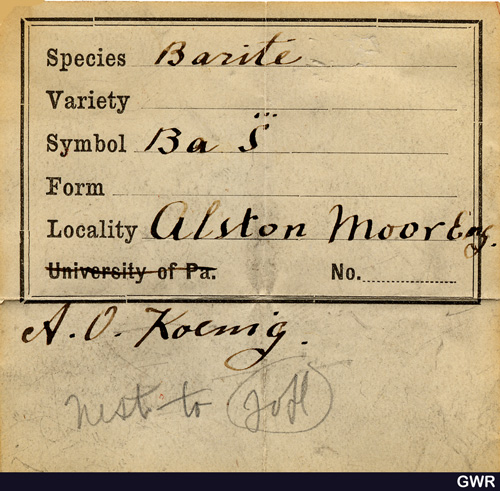 Species Barite
Variety
Symbol Ba S⃛
Form
Locality Alston Moor Eng.
University of Pa. No.
A. O. Koenig.
next to
GWR